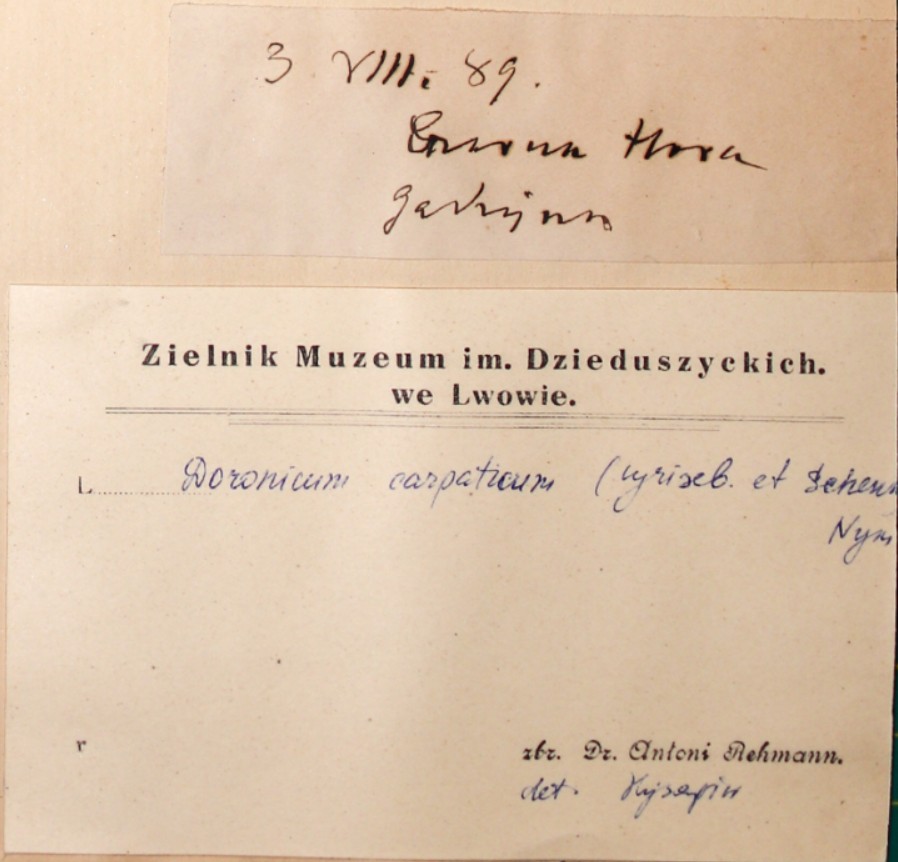 3 VIII. 89.
Czarna Hora
Gadżyna
Zielnik Muzeum im. Dzieduszyckich.
we Lwowie.
L. Doronicum carpaticum (Griseb. et Schenk
Nym
r
zbr. Dr. Antoni Rehmann.
det.